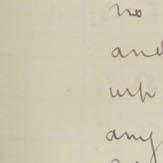 no
and
up
any